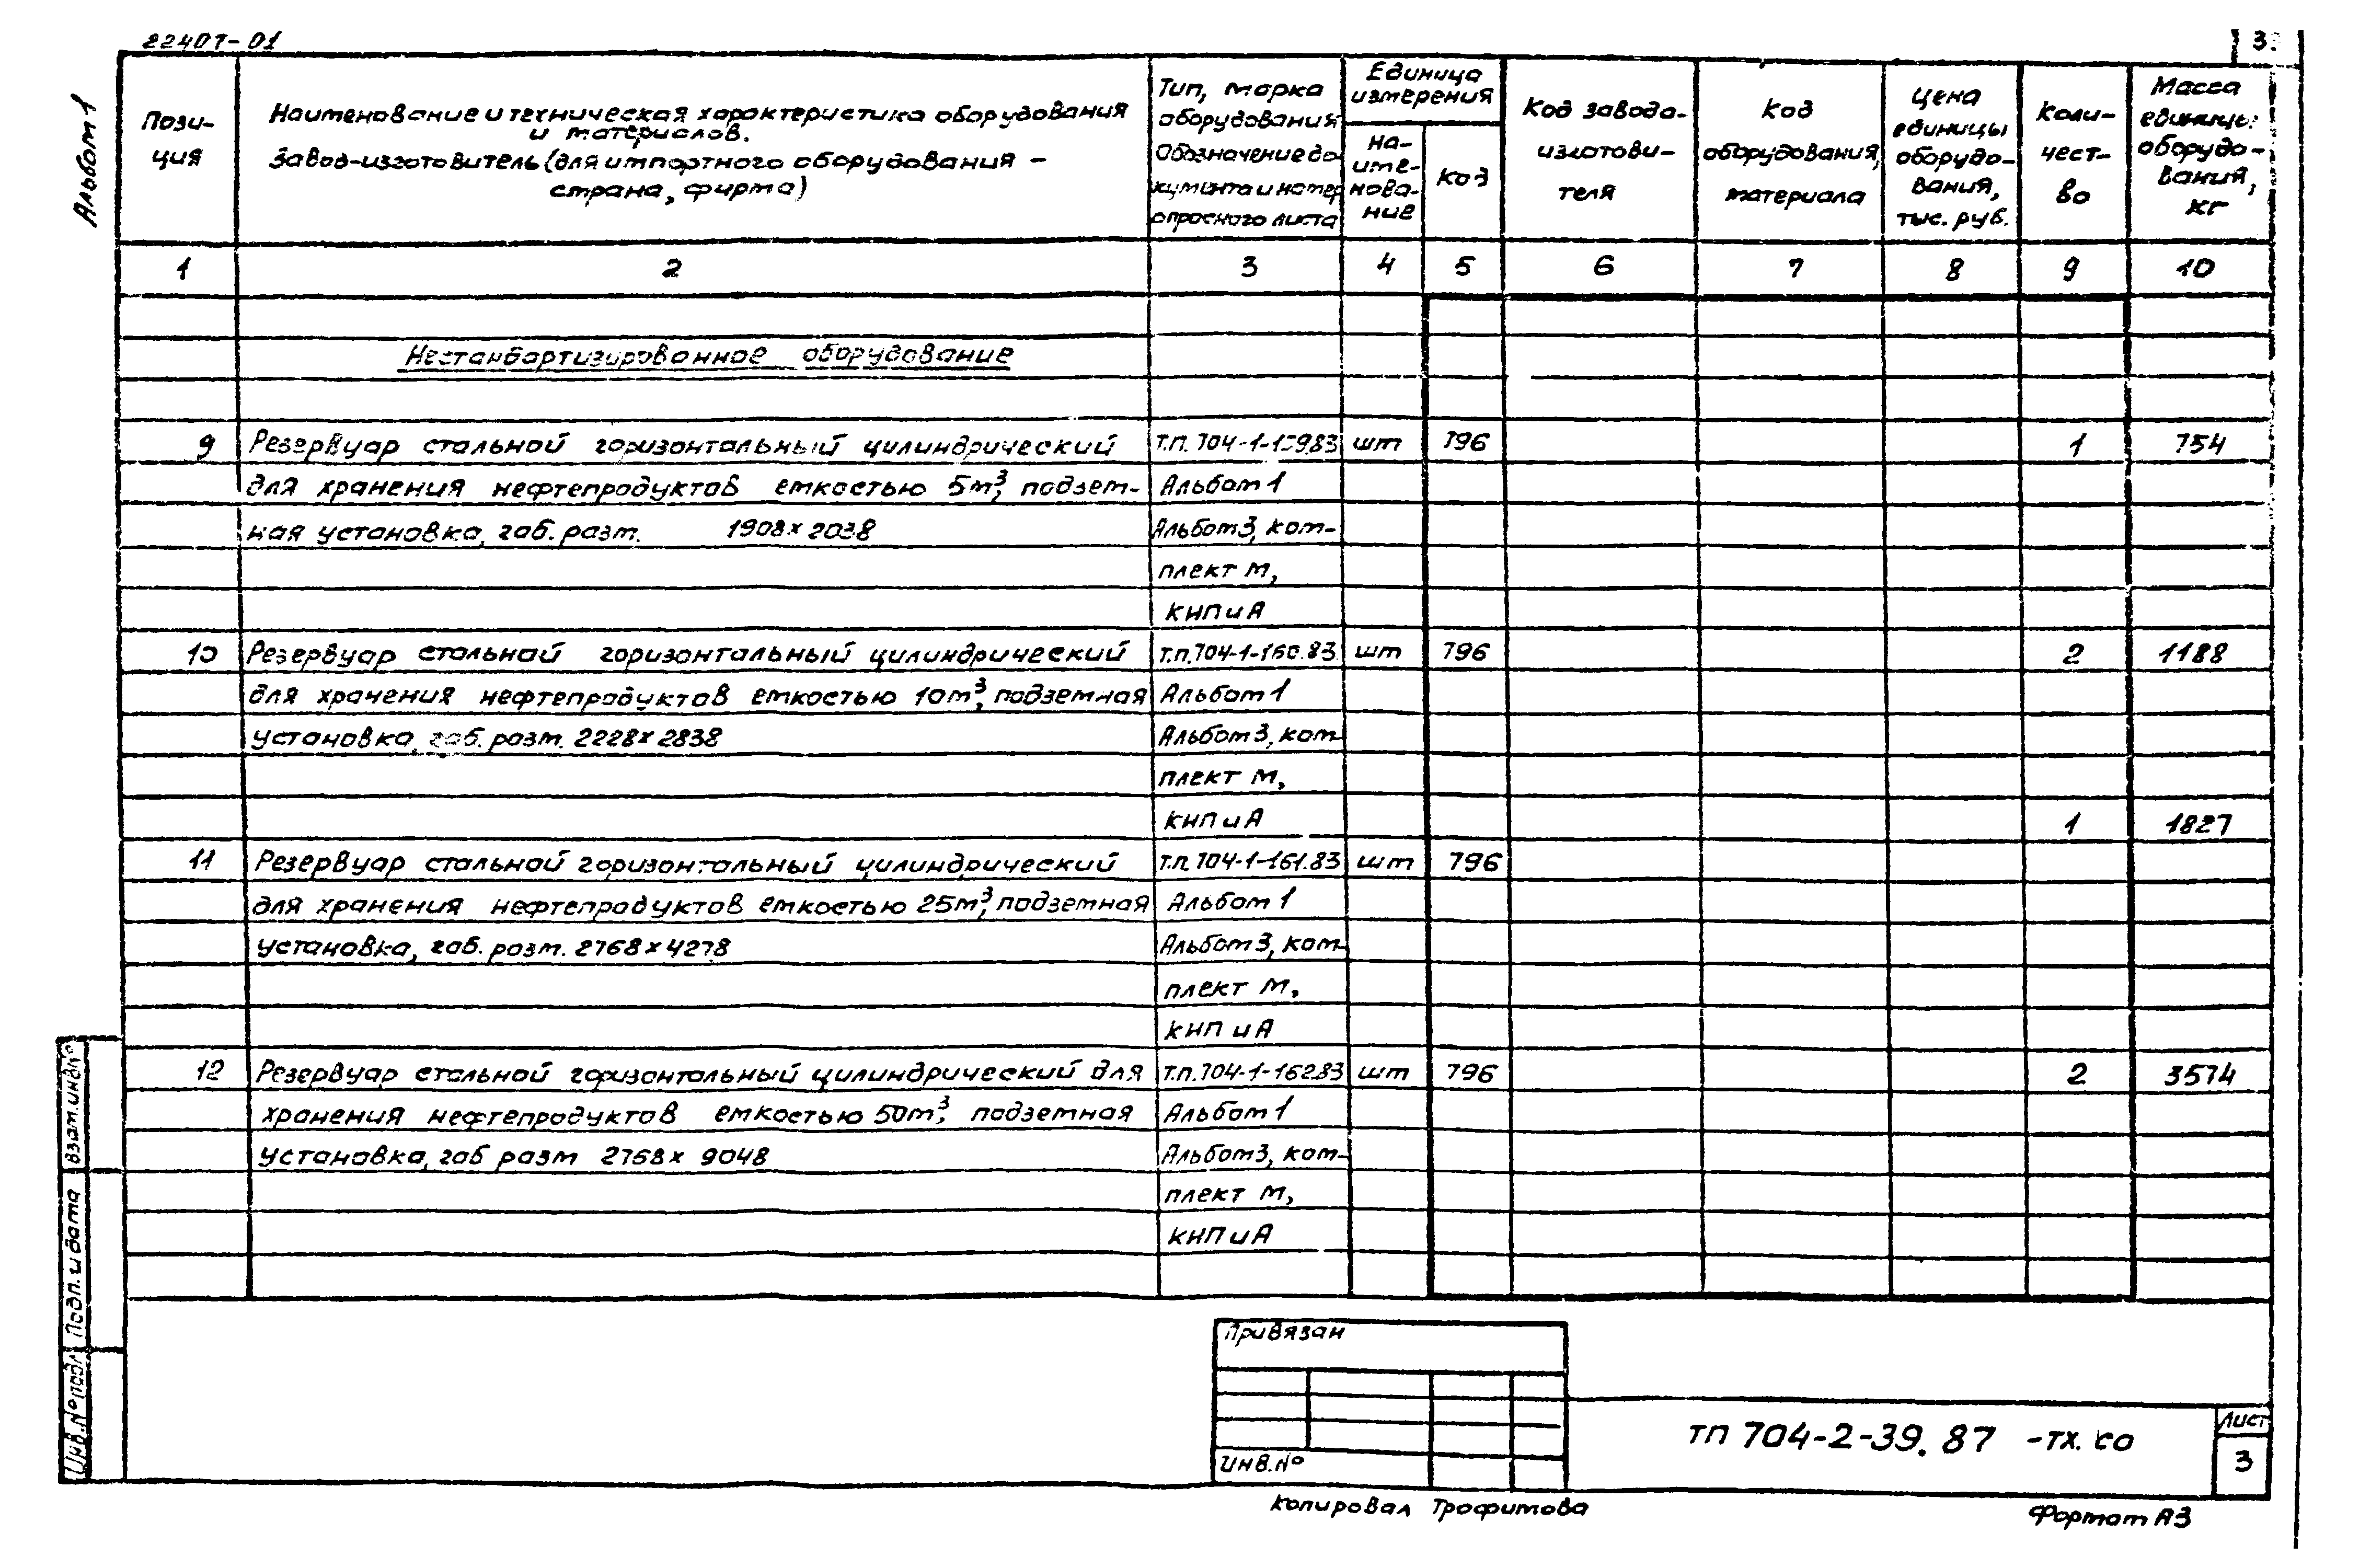 22407-01
3
Альбом 1
Пози-
ция
Наименование и техническая характеристика оборудования
и материалов.
Завод-изготовитель (для импортного оборудования -
страна, фирма)
Тип, марка
оборудования
Обозначение до
кумента и номер
опросного листа
Единица
измерения
На-
име-
нова-
ние
Код
Код завода-
изготови-
теля
Код
оборудования,
материала
Цена
единицы
оборудо-
вания,
тыс. руб.
Коли-
чест-
во
Масса
единицы
оборудо-
вания,
кг
1 2 3 4 5 6 7 8 9 10
Нестандартизированное оборудование
9 Резервуар стальной горизонтальный цилиндрический Т.П. 704-1-159.83 шт 796 1 754
для хранения нефтепродуктов емкостью 5м³, подзем- Альбом 1
ная установка, габ. разм. 1908х2038 Альбом 3, ком-
плект М,
КНП и А
10 Резервуар стальной горизонтальный цилиндрический Т.П. 704-1-160.83 шт 796 2 1188
для хранения нефтепродуктов емкостью 10м³, подземная Альбом 1
установка, габ. разм. 2228х2838 Альбом 3, ком
плект М,
КНП и А 1 1827
11 Резервуар стальной горизонтальный цилиндрический Т.П. 704-1-161.83 шт 796
для хранения нефтепродуктов емкостью 25м³, подземная Альбом 1
установка, габ. разм. 2768х4278 Альбом 3, ком-
плект М,
КНП и А
12 Резервуар стальной горизонтальный цилиндрический для Т.П. 704-1-162.83 шт 796 2 3574
хранения нефтепродуктов емкостью 50м³, подземная Альбом 1
установка, габ разм 2768х 9048 Альбом 3, ком-
плект М,
КНП и А
Взам. инв. №
Подп. и дата
Инв. № подл
Привязан
Инв. №
ТП 704-2-39.87 -ТХ. СО
Лист
3
Копировал Трофимова
Формат А3